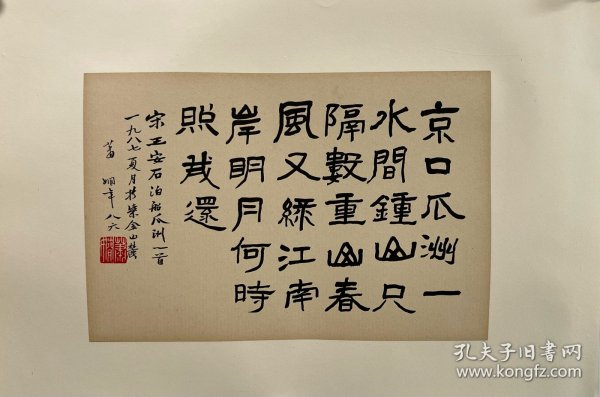 京口瓜洲一
水間鍾山只
隔數重山春
風又綠江南
岸明月何時
照我還
宋王安石泊船瓜洲一首
一九八七夏月於紫金山麓
蕭嫻年八六
孔夫子旧书网
www.kongfz.com